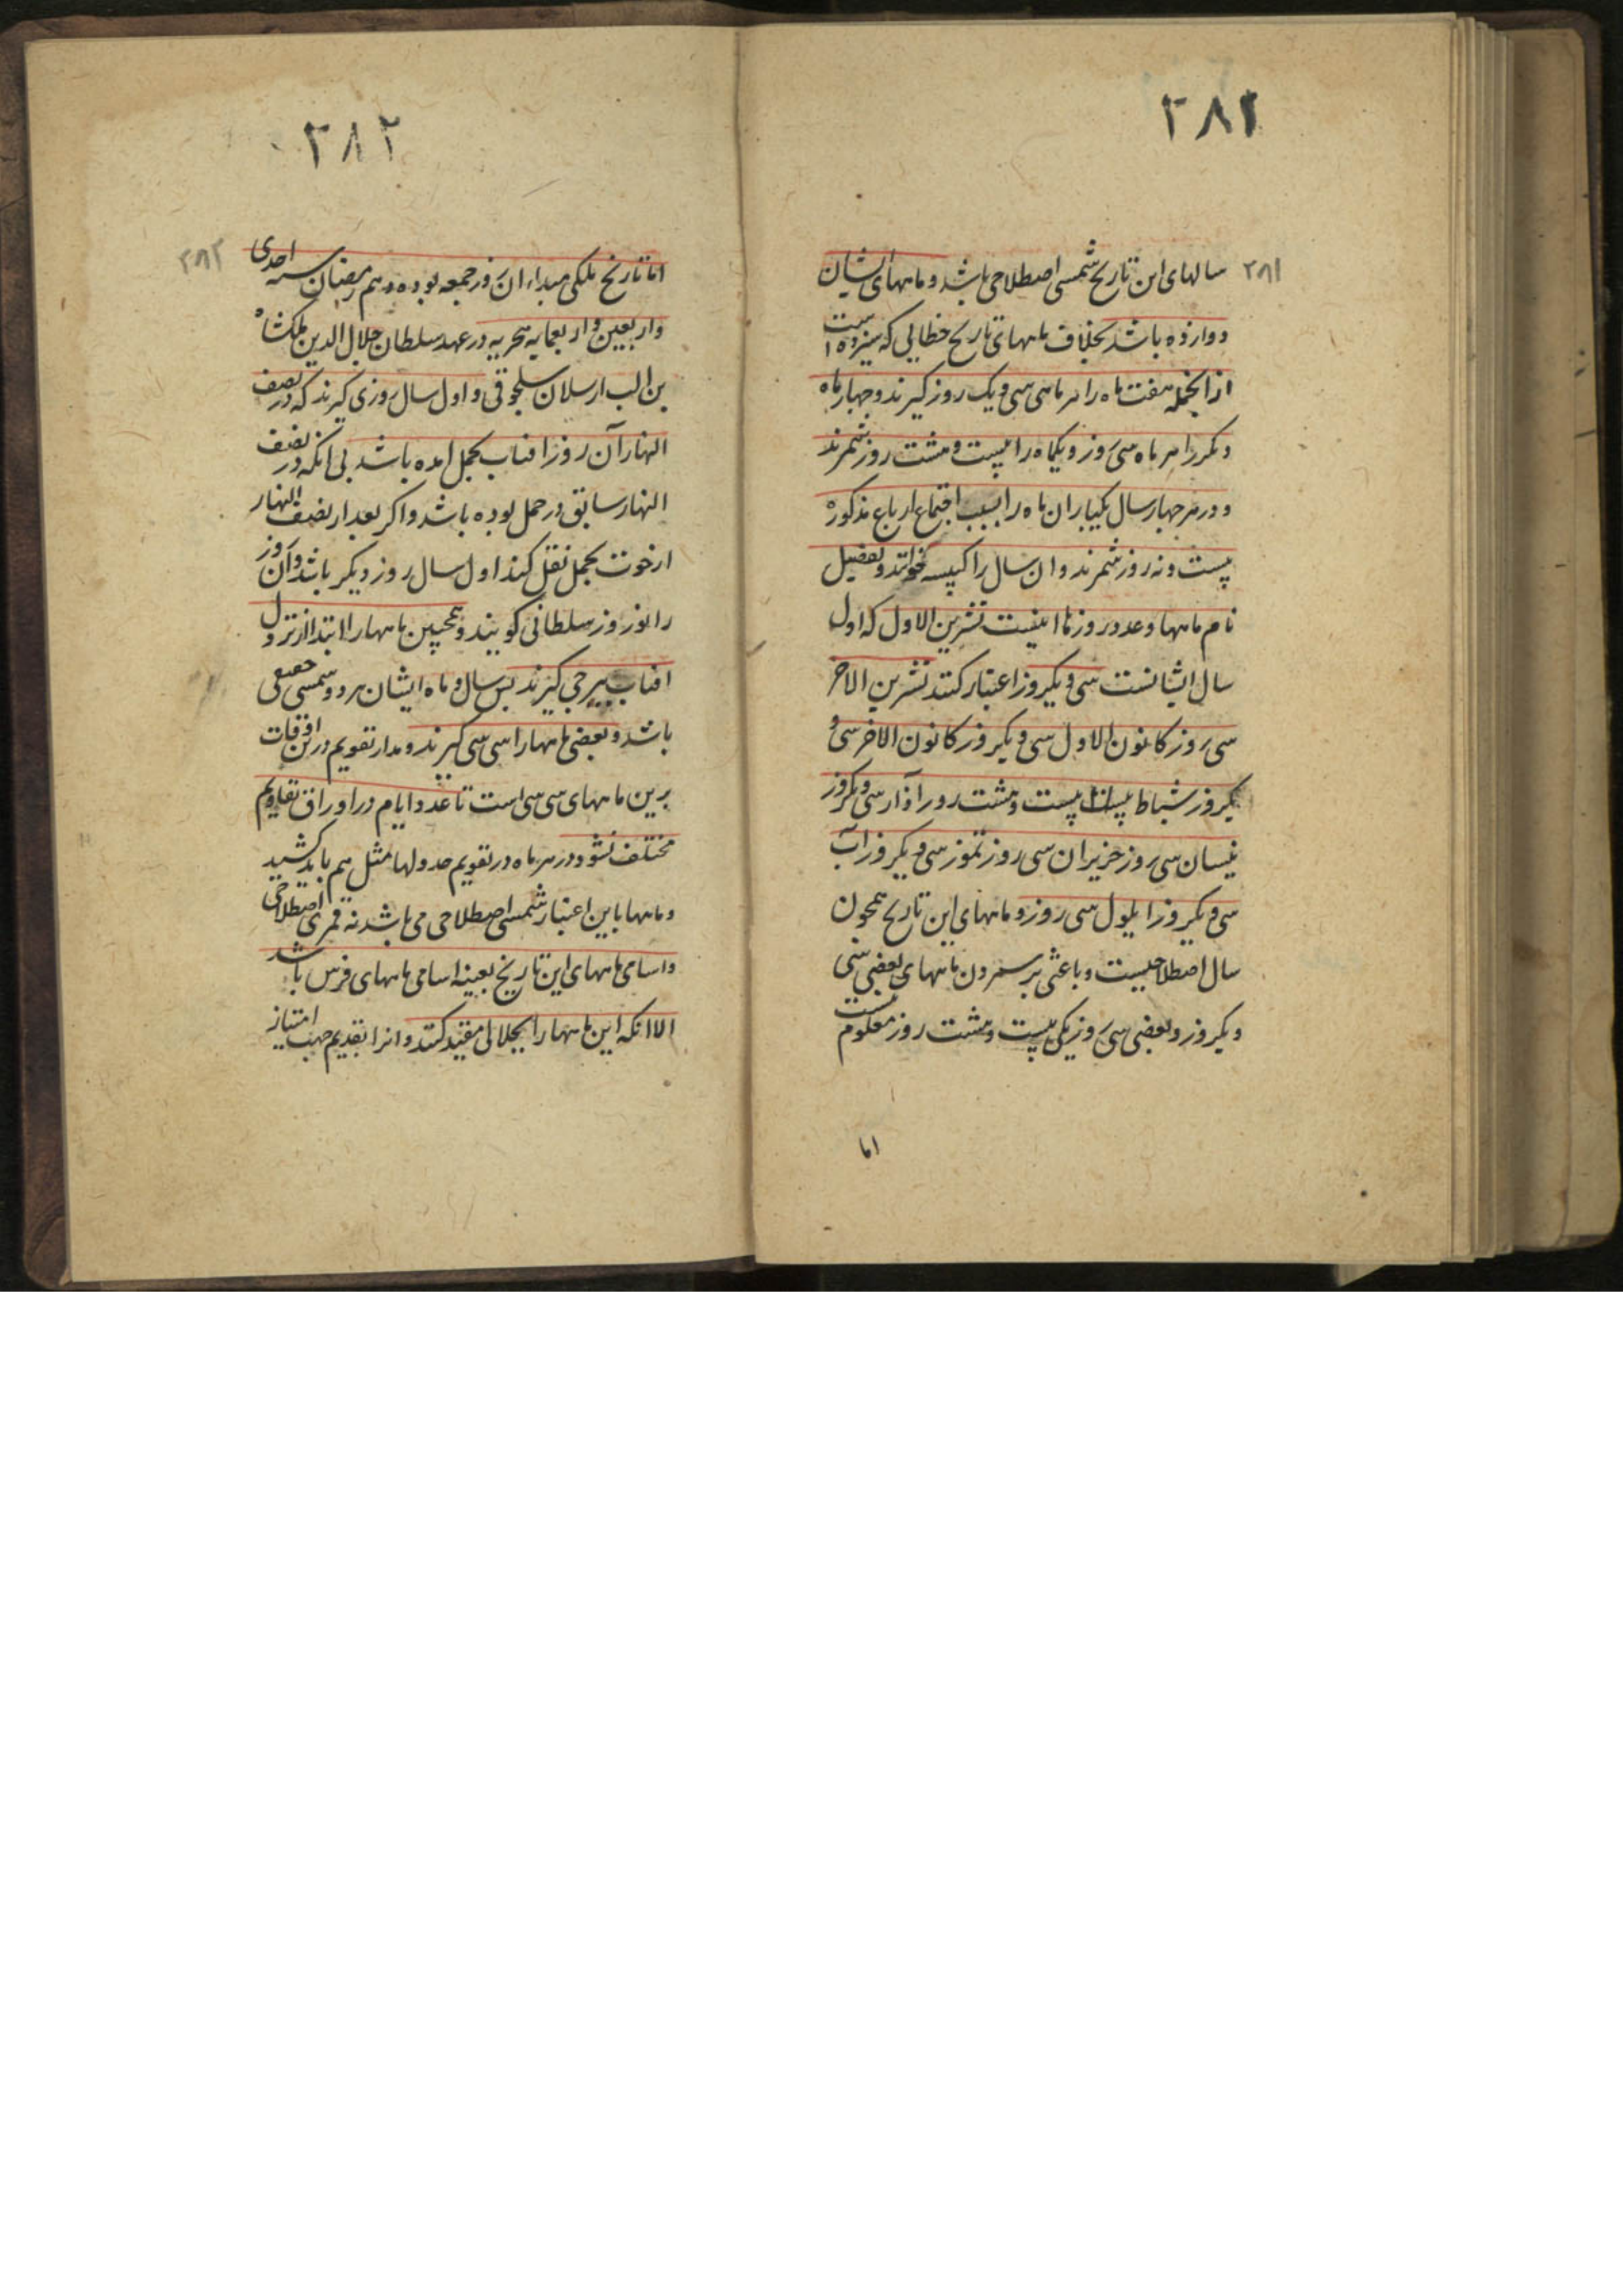 ۲۸۲
۲۸۱
سالهای این تاریخ شمسی اصطلاحی باشد و ماههای ایشان
دوازده باشد بخلاف ماههای تاریخ خطایی که سیزده است
ازانجمله هفت ماه را هر ماهی سی و یک روز گیرند و چهار ماه
دیگر را هر ماه سی روز و یکماه را بیست و هشت روز شمرند
و در هر چهار سال یکبار ان ماه را بسبب اجتماع ارباع مذکوره
بیست و نه روز شمرند و ان سال را کبیسه خوانند و تفصیل
نام ماهها و عدد روزها اینست تشرین الاول که اول
سال ایشانست سی و یکروز اعتبار کنند تشرین الاخر
سی روز کانون الاول سی و یکروز کانون الاخر سی و
یکروز شباط بیست و هشت روز آذار سی و یکروز
نیسان سی روز حزیران سی روز تموز سی و یکروز آب
سی و یکروز ایلول سی روز و ماههای این تاریخ همچون
سال اصطلاحیست و باعثی بر شمردن ماههای بعضی سی
و یکروز و بعضی سی روز یکی بیست و هشت روز معلوم نیست
اما
۲۸۲
۲۸۲
اما تاریخ ملکی مبداء ان روز جمعه بوده دهم رمضان سنه احدی
واربعین و اربعمایه هجریه در عهد سلطان جلال الدین ملکشاه
بن الب ارسلان سلجوقی و اول سال روزی گیرند که در نصف
النهار آن روز افتاب بحمل امده باشد بی انکه در نصف
النهار سابق در حمل بوده باشد و اگر بعد از نصف النهار
از حوت بحمل نقل کند اول سال روز دیگر باشد و آن روز
را نوروز سلطانی گویند و همچنین ماهها را ابتدا از نزول
افتاب ببرجی گیرند پس سال و ماه ایشان هر دو شمسی حقیقی
باشد و بعضی ماهها را سی سی گیرند و مدار تقویم درین اوقات
برین ماههای سی سی است تا عدد ایام در اوراق تقاویم
مختلف نشود و در هر ماه در تقویم جدولها مثل هم باید کشید
و ماهها باین اعتبار شمسی اصطلاحی می باشد نه قمری اصطلاحی
و اسامی ماههای این تاریخ بعینه اسامی ماههای فرس باشد
الا انکه این ماهها را بجلالی مقید کنند و انرا بقدیم جهت امتیاز